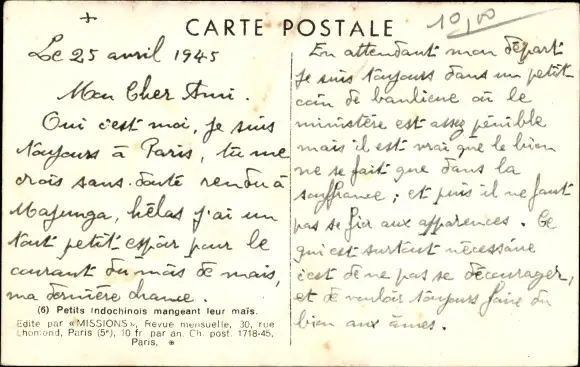 CARTE POSTALE
10,00
Le 25 avril 1945
Mon Cher Ami.
Oui c'est moi, je suis
toujours à Paris, tu me
crois sans doute rendu à
Majunga, hélas j'ai un
tout petit espoir pour le
courant du mois de mais,
ma dernière chance.
(6) Petits Indochinois mangeant leur maïs.
Edité par «MISSIONS», Revue mensuelle, 30, rue
Lhomond, Paris (5e), 10 fr. par an. Ch. post. 1718-45,
Paris.
En attendant mon départ
je suis toujours dans un petit
coin de banlieue où le
ministère est assez pénible
mais il est vrai que le bien
ne se fait que dans la
souffrance ; et puis il ne faut
pas se fier aux apparences. Ce
qui est surtout nécessaire
c'est de ne pas se décourager,
et de vouloir toujours faire du
bien aux âmes.